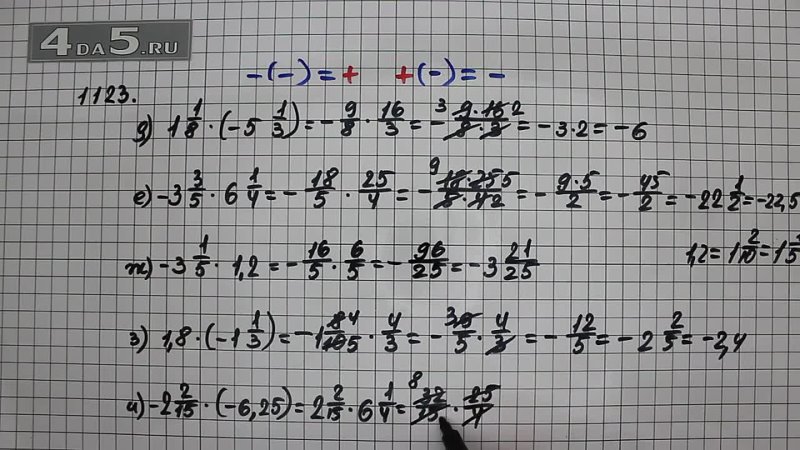 4DA5.RU
-(-) = + +(-) = -
1123.
д) 1 1/8 · (-5 1/3) = - 9/8 · 16/3 = - 3 9·16 2/8·3 = -3·2 = -6
е) -3 3/5 · 6 1/4 = - 18/5 · 25/4 = - 9 18·25 5/5·4 2 = - 9·5/2 = - 45/2 = -22 1/2 = -22,5
ж) -3 1/5 · 1,2 = - 16/5 · 6/5 = - 96/25 = -3 21/25 1,2 = 1 2/10 = 1
з) 1,8 · (-1 1/3) = -1 8 4/10 5 · 4/3 = - 3 9/5 · 4/3 = - 12/5 = -2 2/5 = -2,4
и) -2 2/15 · (-6,25) = 2 2/15 · 6 1/4 = 8 32/15 · 25/4